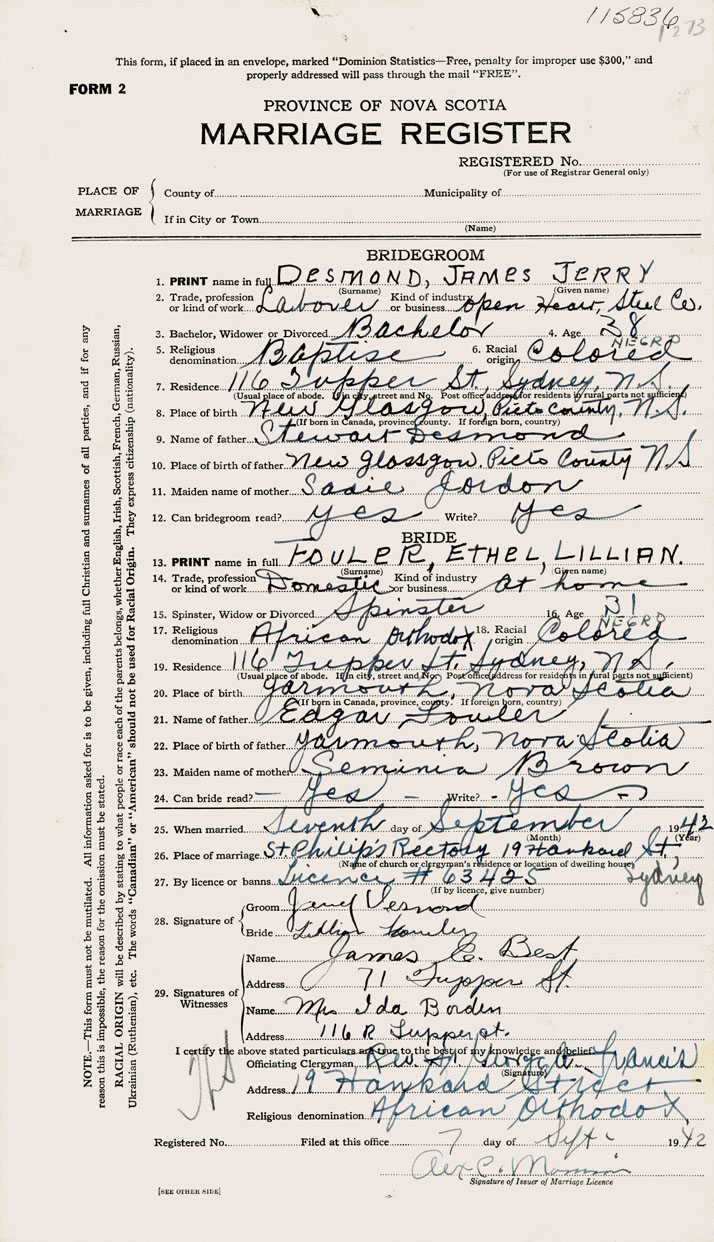 115836
1273
This form, if placed in an envelope, marked “Dominion Statistics—Free, penalty for improper use $300,” and
properly addressed will pass through the mail “FREE”.
FORM 2
PROVINCE OF NOVA SCOTIA
MARRIAGE REGISTER
REGISTERED No.
(For use of Registrar General only)
PLACE OF MARRIAGE
County of Municipality of
If in City or Town
(Name)
BRIDEGROOM
1. PRINT name in full DESMOND, JAMES JERRY
(Surname) (Given name)
2. Trade, profession or kind of work Labover Kind of industry or business open Hear, Steel Co.
3. Bachelor, Widower or Divorced Bachelor 4. Age 38
NEGRO
5. Religious denomination Baptise 6. Racial origin Colored
7. Residence 116 Tupper St, Sydney, N.S.
(Usual place of abode. If in city, street and No. Post office address for residents in rural parts not sufficient)
8. Place of birth New Glasgow, Picto County, N.S.
(If born in Canada, province, county. If foreign born, country)
9. Name of father Stewart Desmond
10. Place of birth of father New Glassgow, Picto County NS
11. Maiden name of mother Sadie Jordon
12. Can bridegroom read? yes Write? Yes
BRIDE
13. PRINT name in full FOULER, ETHEL, LILLIAN.
(Surname) (Given name)
14. Trade, profession or kind of work Domestic Kind of industry or business at home
15. Spinster, Widow or Divorced Spinster 16. Age 31
NEGRO
17. Religious denomination African Orthodox 18. Racial origin Colored
19. Residence 116 Tupper St. Sydney, N.S.
(Usual place of abode. If in city, street and No. Post office address for residents in rural parts not sufficient)
20. Place of birth Yarmouth, Nova Scotia
(If born in Canada, province, county. If foreign born, country)
21. Name of father Edgar Fowler
22. Place of birth of father Yarmouth, Nova Scotia
23. Maiden name of mother Seminia Brown
24. Can bride read? Yes Write? Yes
25. When married Seventh day of September 1942
(Month) (Year)
26. Place of marriage St Philip's Rectory 19 Hankard St
(Name of church or clergyman's residence or location of dwelling house)
Sydney
27. By licence or banns Licence # 63425
(If by licence, give number)
28. Signature of
Groom
Bride Lillian Fowler
29. Signatures of Witnesses
Name James C. Best
Address 71 Tupper St.
Name Mrs Ida Borden
Address 116 R Tupper st.
I certify the above stated particulars are true to the best of my knowledge and belief.
Officiating Clergyman Rev. George A Francis
(Signature)
Address 19 Hankard Street
Religious denomination African Orthodox
Registered No. Filed at this office 7 day of Sept 1942
Signature of Issuer of Marriage Licence
[SEE OTHER SIDE]
NOTE.—This form must not be mutilated. All information asked for is to be given, including full Christian and surnames of all parties, and if for any
reason this is impossible, the reason for the omission must be stated.
RACIAL ORIGIN will be described by stating to what people or race each of the parents belongs, whether English, Irish, Scottish, French, German, Russian,
Ukrainian (Ruthenian), etc. The words “Canadian” or “American” should not be used for Racial Origin. They express citizenship (nationality).